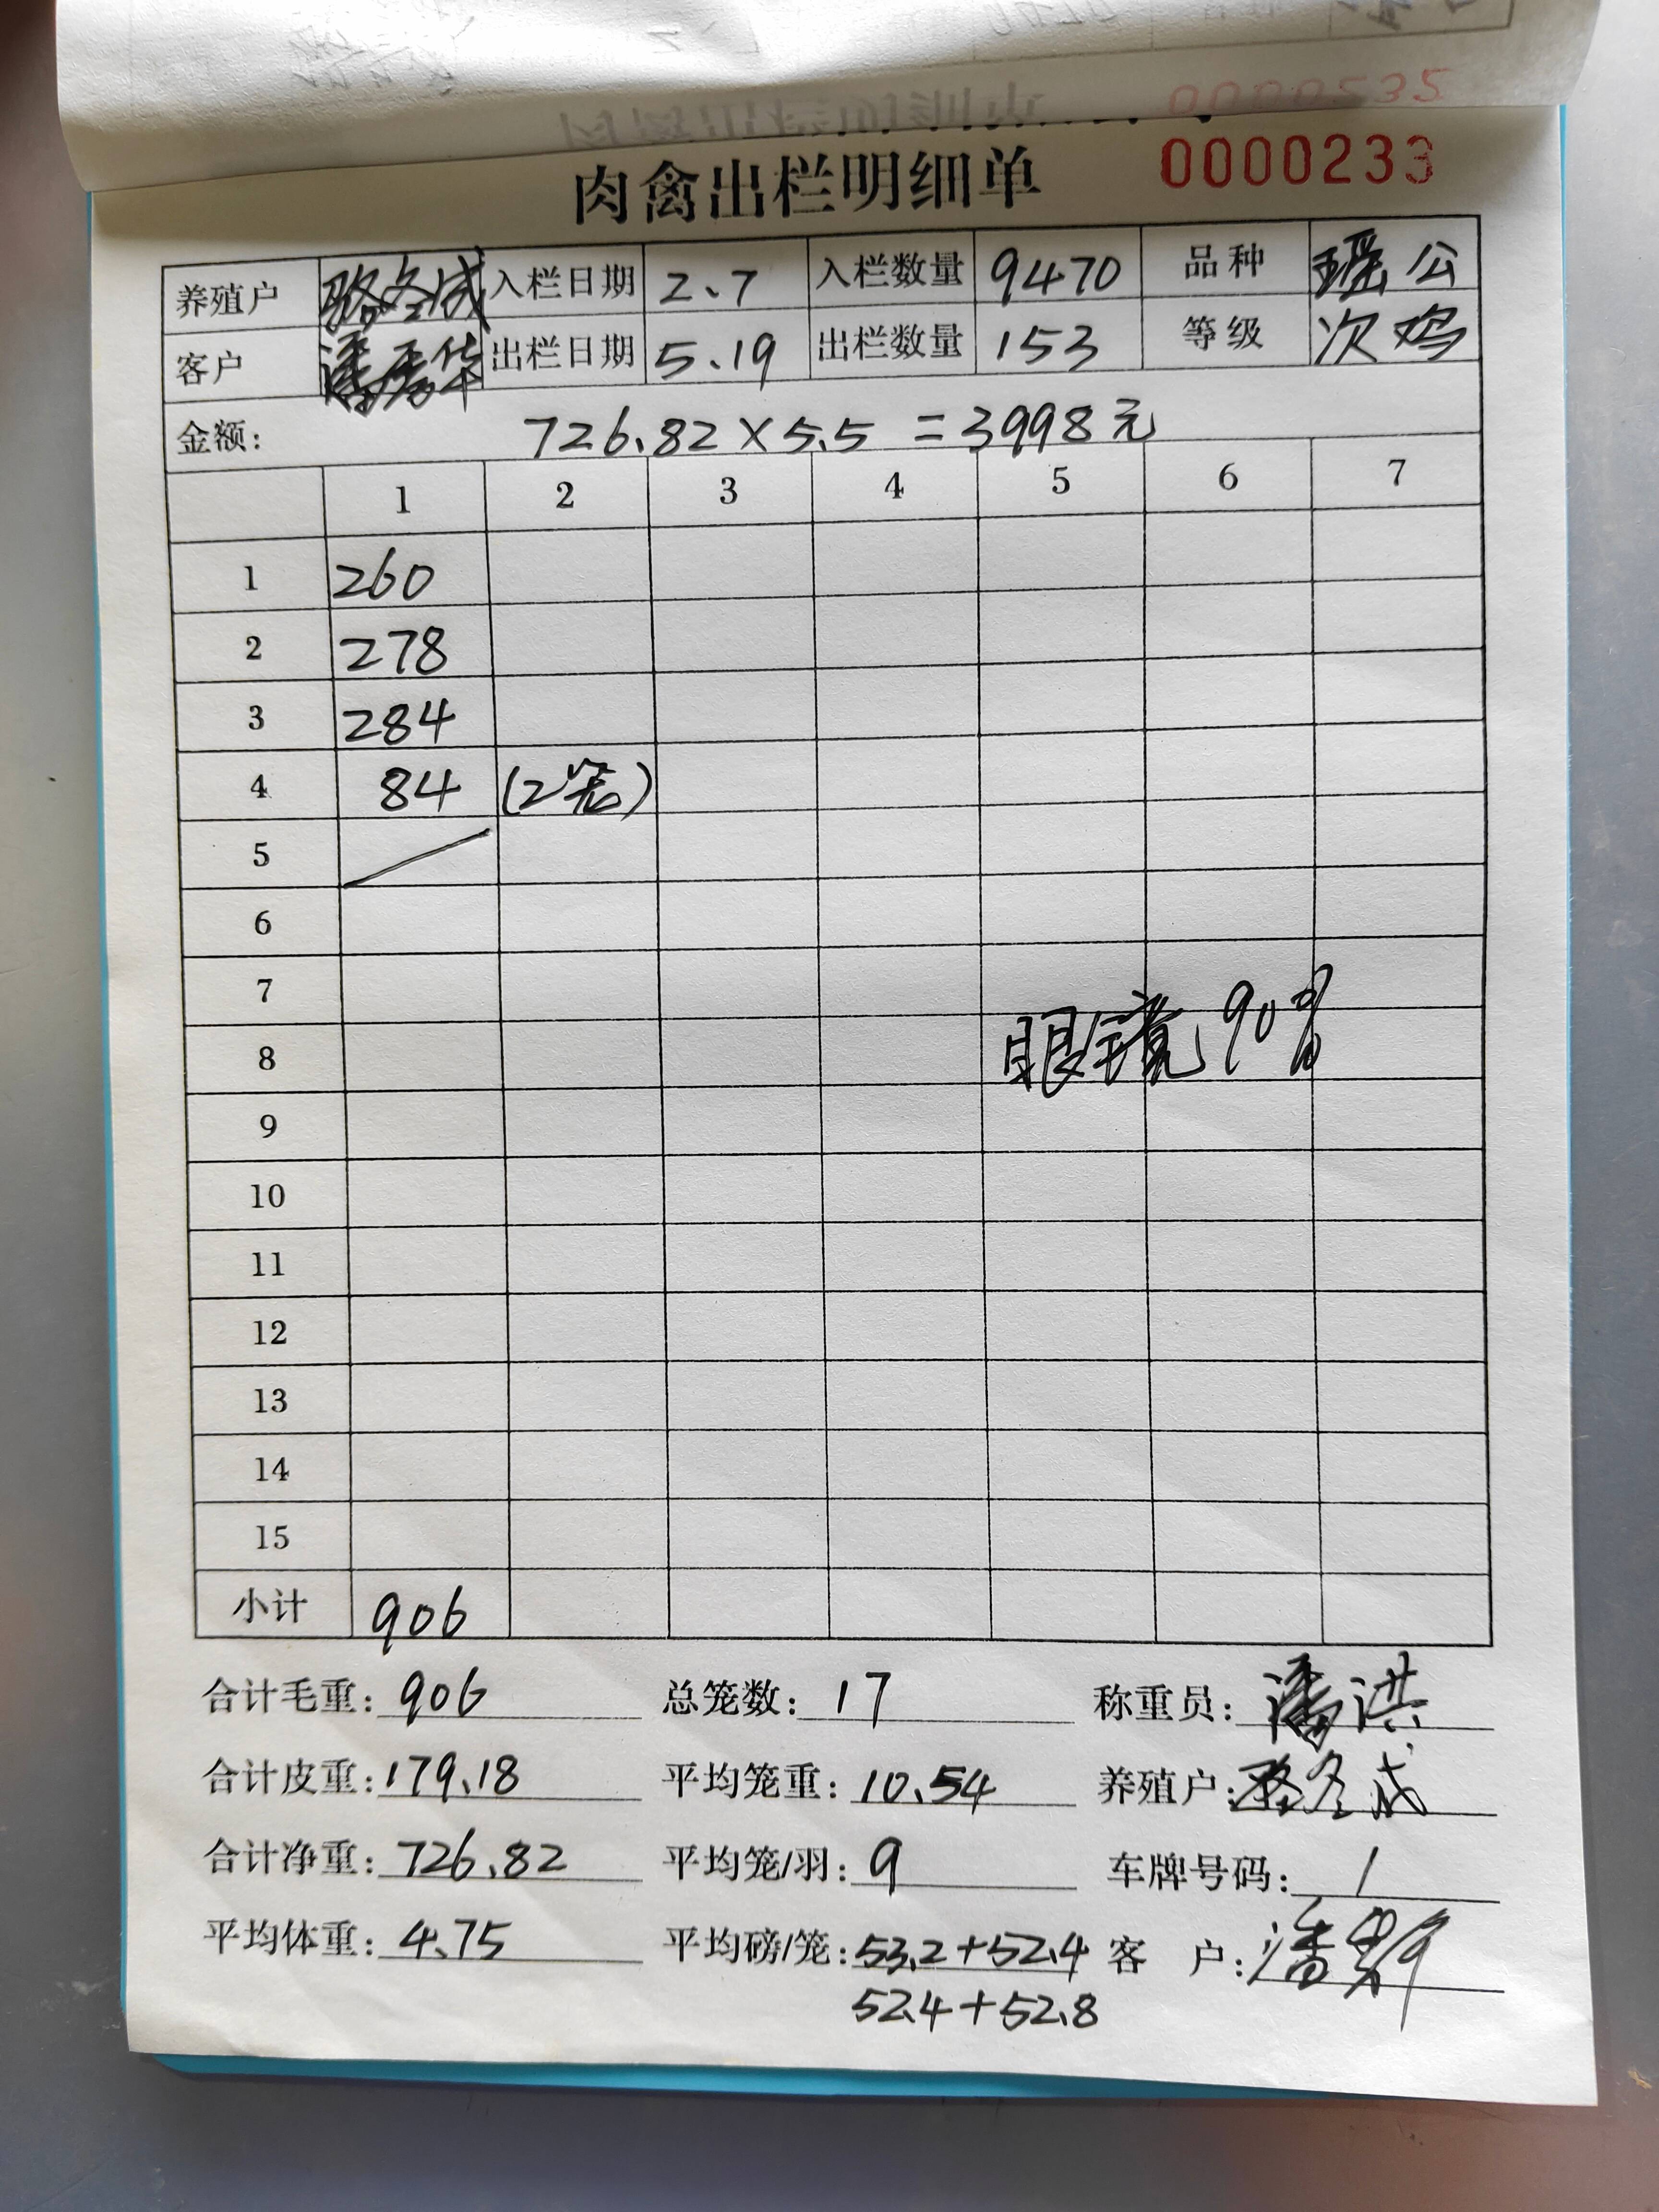 肉禽出栏明细单 0000233
养殖户 骆冬成 入栏日期 2.7 入栏数量 9470 品种 瑶公
客户 潘秀华 出栏日期 5.19 出栏数量 153 等级 次鸡
金额: 726.82×5.5=3998元
1 2 3 4 5 6 7
1 260
2 278
3 284
4 84 (2笼)
5
6
7
8 眼镜90%
9
10
11
12
13
14
15
小计 906
合计毛重: 906 总笼数: 17 称重员: 潘洪
合计皮重: 179.18 平均笼重: 10.54 养殖户: 骆冬成
合计净重: 726.82 平均笼/羽: 9 车牌号码: /
平均体重: 4.75 平均磅/笼: 53.2+52.4 客 户: 潘
52.4+52.8